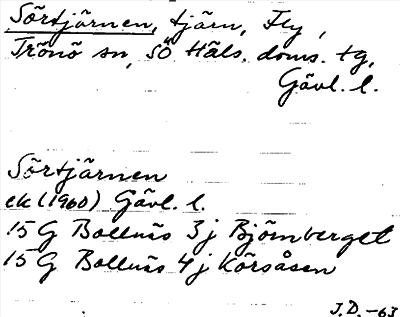 Sörtjärnen, tjärn, Fly,
Trönö sn, SÖ Häls. doms. tg,
Gävl. l.
Sörtjärnen
ek (1960) Gävl. l.
15 G Bollnäs 3 j Björnberget
15 G Bollnäs 4 j Körsåsen
J.D. -63